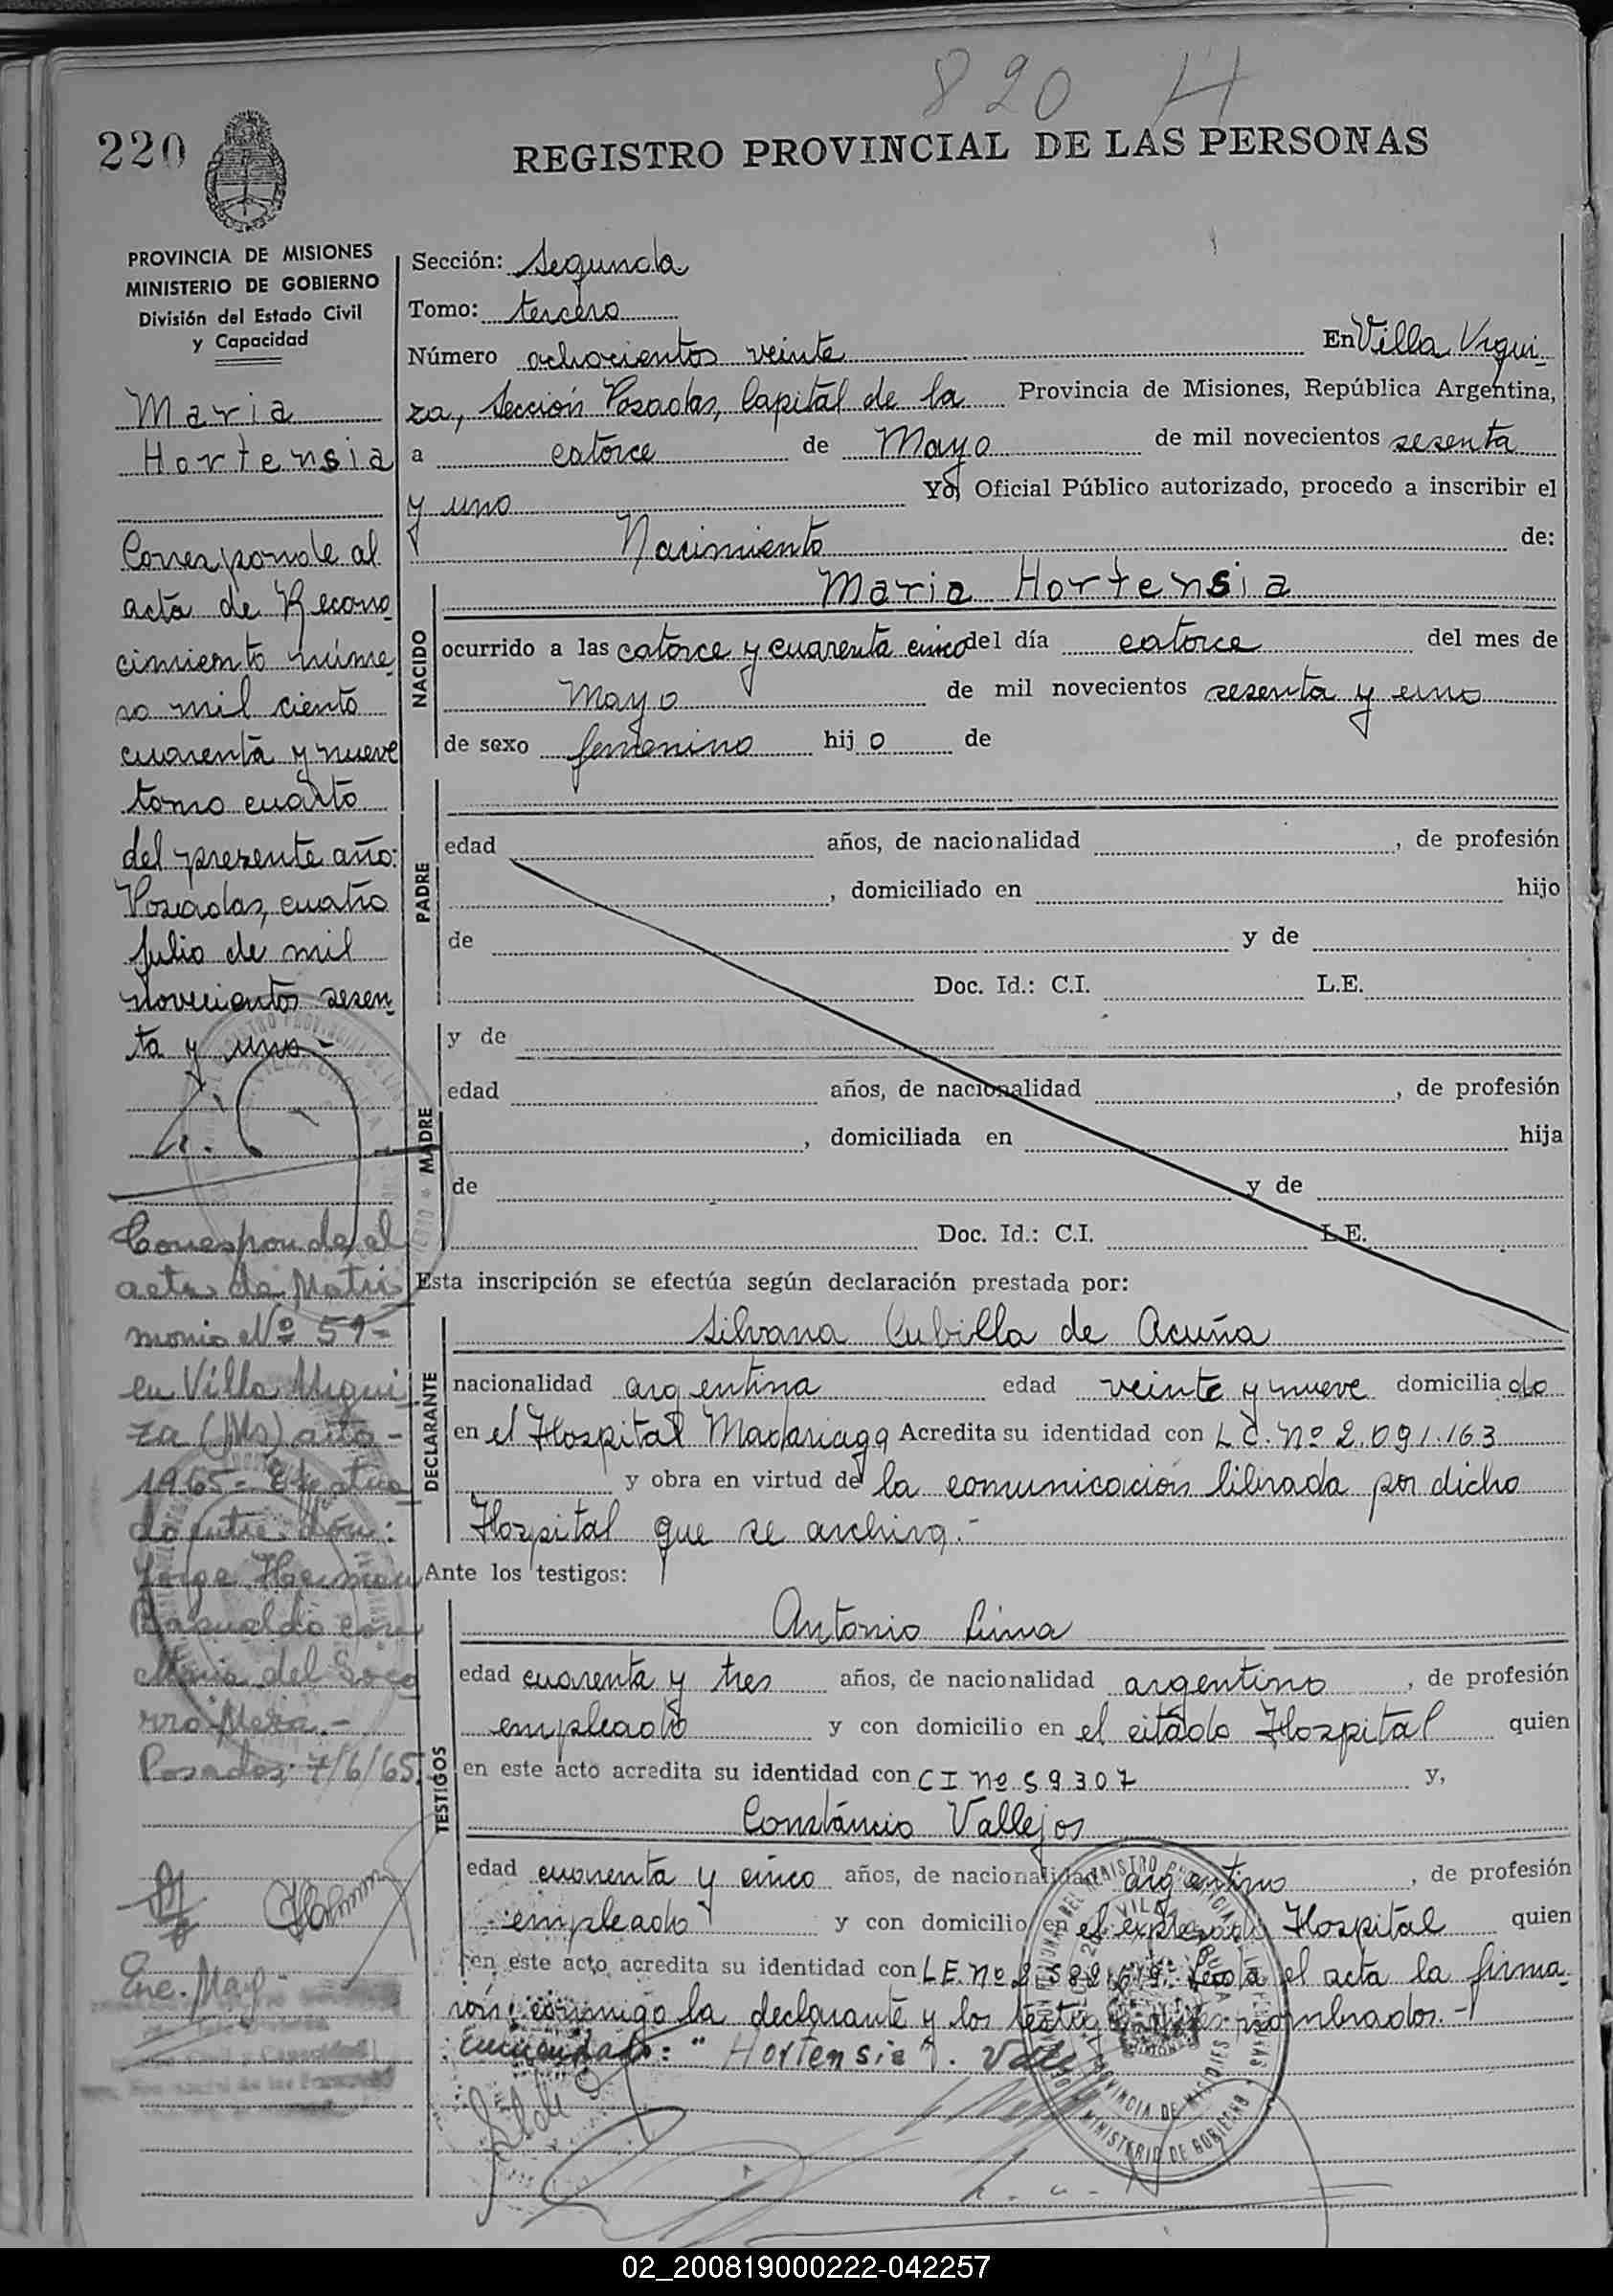 820 H
220
REGISTRO PROVINCIAL DE LAS PERSONAS
PROVINCIA DE MISIONES
MINISTERIO DE GOBIERNO
División del Estado Civil
y Capacidad
Maria
Hortensia
Corresponde al
acta de Recono
cimiento núme
ro mil ciento
cuarenta y nueve
tomo cuarto
del presente año:
Posadas, cuatro
Julio de mil
novecientos sesen
ta y uno.-
Corresponde al
acta de Matri
monio Nº 51-
en Villa Urqui
za (Ms) año-
1965- Efectua
do entre don:
Jorge Herman
Basualdo con
Maria del Soco
rro Meza.-
Posadas, 7/6/65.
Sección: Segunda
Tomo: tercero
Número ochocientos veinte En Villa Urqui-
za, Sección Posadas, Capital de la Provincia de Misiones, República Argentina,
a catorce de Mayo de mil novecientos sesenta
y uno Yo, Oficial Público autorizado, procedo a inscribir el
Nacimiento de:
NACIDO
Maria Hortensia
ocurrido a las catorce y cuarenta cinco del día catorce del mes de
Mayo de mil novecientos sesenta y uno
de sexo femenino hijo de
PADRE
edad años, de nacionalidad , de profesión
, domiciliado en hijo
de y de
Doc. Id.: C.I. L.E.
MADRE
y de
edad años, de nacionalidad , de profesión
, domiciliada en hija
de y de
Doc. Id.: C.I. L.E.
Esta inscripción se efectúa según declaración prestada por:
DECLARANTE
Silvana Cubilla de Acuña
nacionalidad argentina edad veinte y nueve domiciliado
en el Hospital Madariaga Acredita su identidad con L C. Nº 2.091.163
y obra en virtud de la comunicación librada por dicho
Hospital que se archiva.-
Ante los testigos:
TESTIGOS
Antonio Lima
edad cuarenta y tres años, de nacionalidad argentino , de profesión
empleado y con domicilio en el citado Hospital quien
en este acto acredita su identidad con C I Nº 59307 y,
Constáncio Vallejos
edad cuarenta y cinco años, de nacionalidad argentino , de profesión
empleado y con domicilio en el expresado Hospital quien
en este acto acredita su identidad con L.E. Nº Leota el acta la firma
rón conmigo la declarante y los testigos nombrados.-
Enmendado: "Hortensia". Vale
02_200819000222-042257